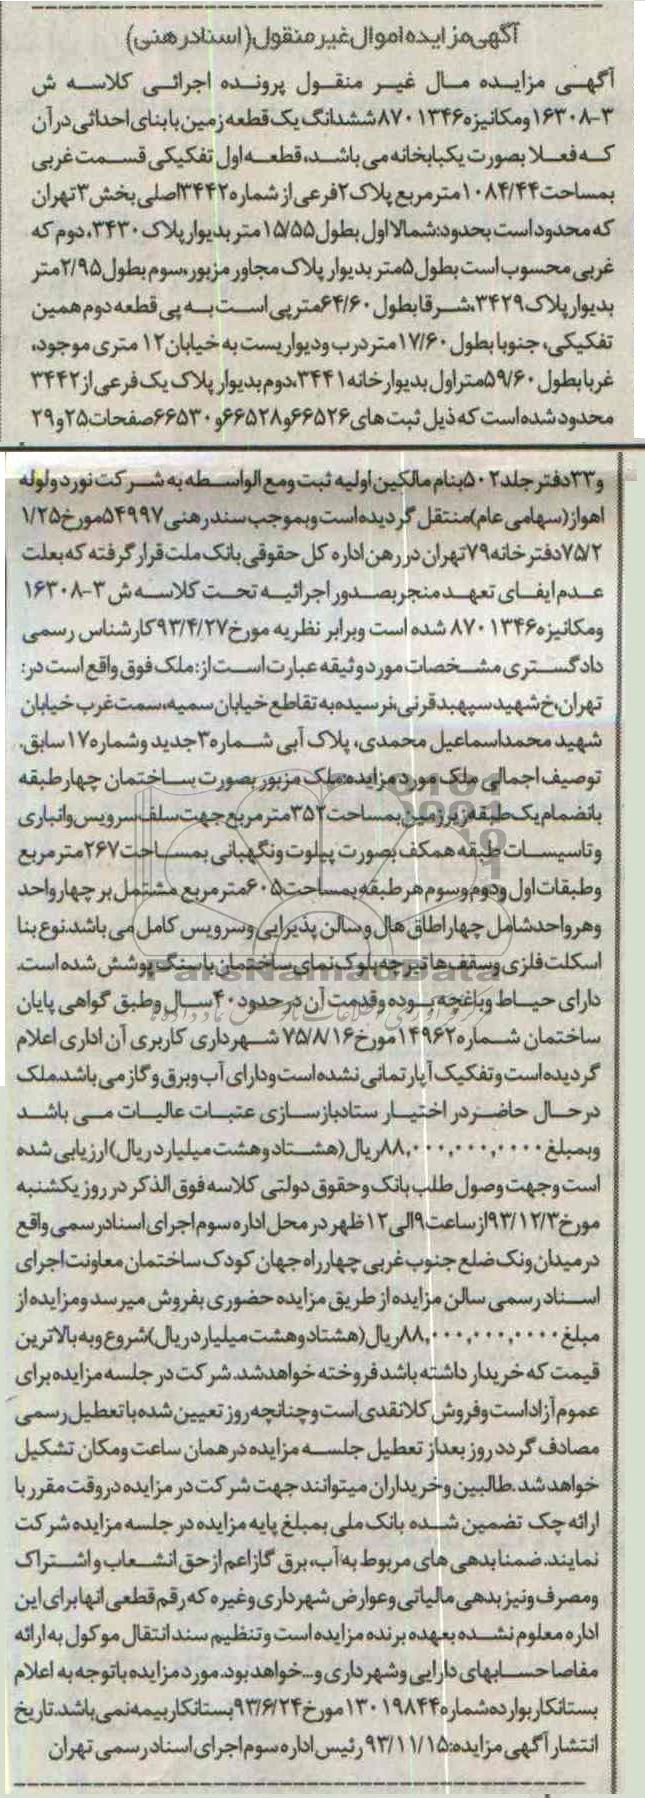 آگهی مزایده اموال غیر منقول (اسناد رهنی)
آگهی مزایده مال غیر منقول پرونده اجرائی کلاسه ش
۳-۱۶۳۰۸ ومکانیزه ۸۷۰۱۳۴۶ ششدانگ یک قطعه زمین با بنای احداثی در آن
که فعلا بصورت یکبابخانه می باشد، قطعه اول تفکیکی قسمت غربی
بمساحت ۱۰۸۴/۴۴ مترمربع پلاک ۲ فرعی از شماره ۳۴۴۲ اصلی بخش ۳ تهران
که محدود است بحدود: شمالا اول بطول ۱۵/۵۵ متر بدیوار پلاک ۳۴۳۰، دوم که
غربی محسوب است بطول ۵ متر بدیوار پلاک مجاور مزبور، سوم بطول ۲/۹۵ متر
بدیوار پلاک ۳۴۲۹، شرقا بطول ۶۴/۶۰ متر پی است به پی قطعه دوم همین
تفکیکی، جنوبا بطول ۱۷/۶۰ متر درب ودیواریست به خیابان ۱۲ متری موجود،
غربا بطول ۵۹/۶۰ متر اول بدیوار خانه ۳۴۴۱، دوم بدیوار پلاک یک فرعی از ۳۴۴۲
محدود شده است که ذیل ثبت های ۶۶۵۲۶ و ۶۶۵۲۸ و ۶۶۵۳۰ صفحات ۲۵ و ۲۹
و ۳۳ دفتر جلد ۵۰۲ بنام مالکین اولیه ثبت ومع الواسطه به شرکت نورد ولوله
اهواز (سهامی عام) منتقل گردیده است وبموجب سند رهنی ۵۴۹۹۷ مورخ ۱/۲۵
۷۵/۲ دفترخانه ۷۹ تهران در رهن اداره کل حقوقی بانک ملت قرار گرفته که بعلت
عدم ایفای تعهد منجر بصدور اجرائیه تحت کلاسه ش ۳-۱۶۳۰۸
ومکانیزه ۸۷۰۱۳۴۶ شده است وبرابر نظریه مورخ ۹۳/۴/۲۷ کارشناس رسمی
دادگستری مشخصات مورد وثیقه عبارت است از: ملک فوق واقع است در:
تهران، خ شهید سپهبد قرنی، نرسیده به تقاطع خیابان سمیه، سمت غرب خیابان
شهید محمداسماعیل محمدی، پلاک آبی شماره ۳ جدید وشماره ۱۷ سابق.
توصیف اجمالی ملک مورد مزایده: ملک مزبور بصورت ساختمان چهار طبقه
بانضمام یک طبقه زیرزمین بمساحت ۳۵۲ متر مربع جهت سلف سرویس وانباری
وتاسیسات طبقه همکف بصورت پیلوت ونگهبانی بمساحت ۲۶۷ متر مربع
وطبقات اول ودوم وسوم هر طبقه بمساحت ۶۰۵ متر مربع مشتمل بر چهار واحد
وهر واحد شامل چهار اطاق هال و سالن پذیرایی وسرویس کامل می باشد. نوع بنا
اسکلت فلزی وسقف ها تیرچه بلوک نمای ساختمان با سنگ پوشش شده است.
دارای حیاط وباغچه بوده وقدمت آن در حدود ۴۰ سال وطبق گواهی پایان
ساختمان شماره ۱۴۹۶۲ مورخ ۷۵/۸/۱۶ شهرداری کاربری آن اداری اعلام
گردیده است وتفکیک آپارتمانی نشده است ودارای آب وبرق وگاز می باشد. ملک
در حال حاضر در اختیار ستاد بازسازی عتبات عالیات می باشد
وبمبلغ ۸۸,۰۰۰,۰۰۰,۰۰۰۰ ریال (هشتاد وهشت میلیارد ریال) ارزیابی شده
است وجهت وصول طلب بانک وحقوق دولتی کلاسه فوق الذکر در روز یکشنبه
مورخ ۹۳/۱۲/۳ از ساعت ۹ الی ۱۲ ظهر در محل اداره سوم اجرای اسناد رسمی واقع
در میدان ونک ضلع جنوب غربی چهارراه جهان کودک ساختمان معاونت اجرای
اسناد رسمی سالن مزایده از طریق مزایده حضوری بفروش میرسد ومزایده از
مبلغ ۸۸,۰۰۰,۰۰۰,۰۰۰۰ ریال (هشتاد وهشت میلیارد ریال) شروع وبه بالاترین
قیمت که خریدار داشته باشد فروخته خواهد شد. شرکت در جلسه مزایده برای
عموم آزاد است وفروش کلا نقدی است وچنانچه روز تعیین شده با تعطیل رسمی
مصادف گردد روز بعد از تعطیل جلسه مزایده در همان ساعت ومکان تشکیل
خواهد شد. طالبین وخریداران میتوانند جهت شرکت در مزایده در وقت مقرر با
ارائه چک تضمین شده بانک ملی بمبلغ پایه مزایده در جلسه مزایده شرکت
نمایند. ضمنا بدهی های مربوط به آب، برق گاز اعم از حق انشعاب و اشتراک
ومصرف ونیز بدهی مالیاتی وعوارض شهرداری وغیره که رقم قطعی انها برای این
اداره معلوم نشده بعهده برنده مزایده است وتنظیم سند انتقال موکول به ارائه
مفاصا حسابهای دارایی وشهرداری و... خواهد بود. مورد مزایده باتوجه به اعلام
بستانکار بوارده شماره ۱۳۰۱۹۸۴۴ مورخ ۹۳/۶/۲۴ بستانکار بیمه نمی باشد. تاریخ
انتشار آگهی مزایده: ۹۳/۱۱/۱۵ رئیس اداره سوم اجرای اسناد رسمی تهران
ParsNamadData